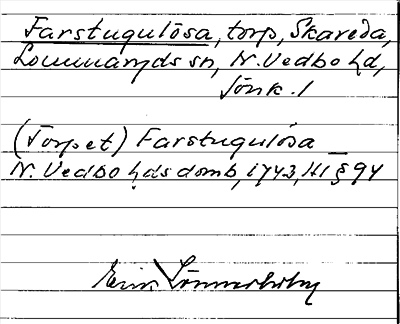 Farstugulösa, torp, Skareda,
Lommaryds sn, N. Vedbo hd,
Jönk. l
(Torpet) Farstugulösa
N. Vedbo hds domb, 1743, H1 § 94